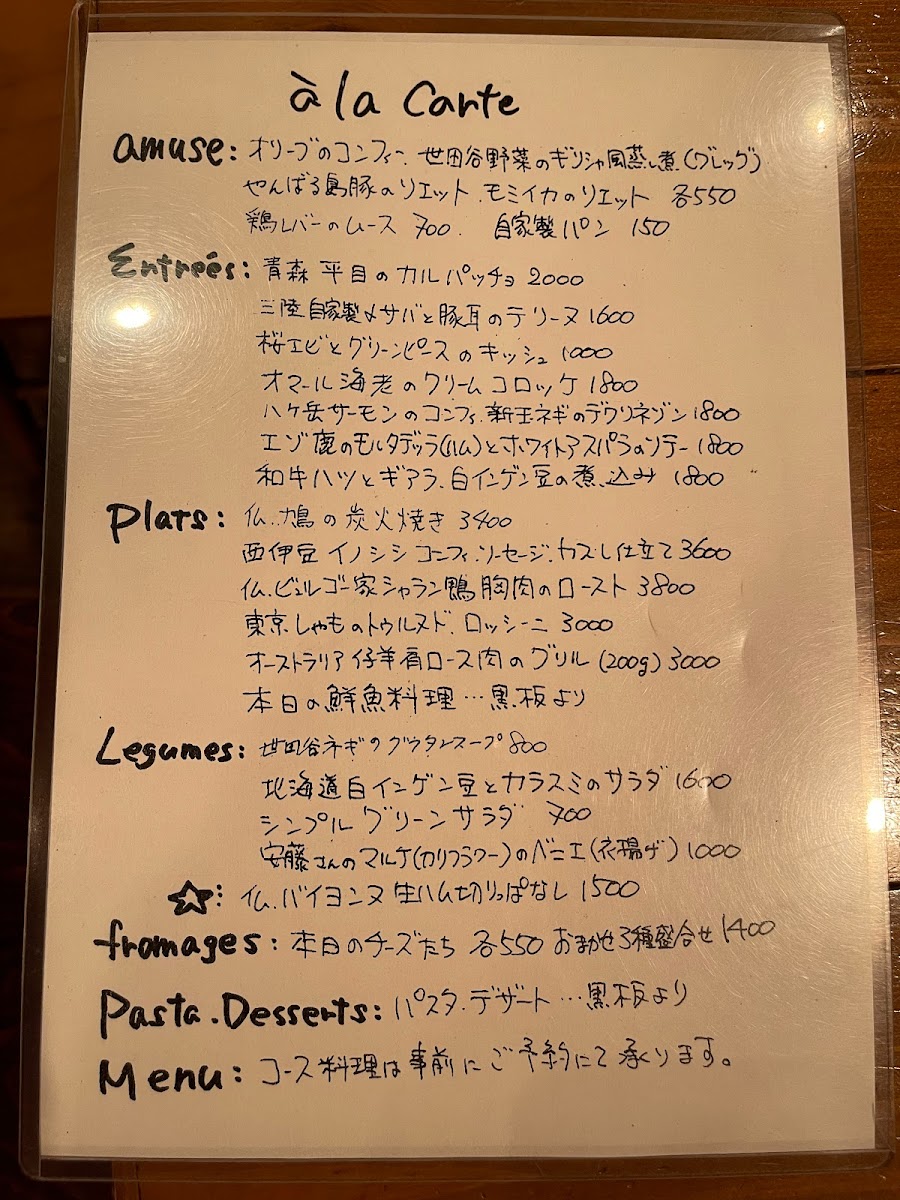 à la Carte
amuse: オリーブのコンフィー. 世田谷野菜のギリシャ風蒸し煮(グレッグ)
やんばる島豚のリエット. モミイカのリエット 各550
鶏レバーのムース 700. 自家製パン 150
Entreés: 青森 平目のカルパッチョ 2000
三陸自家製〆サバと豚耳のテリーヌ 1600
桜エビとグリーンピースのキッシュ 1000
オマール海老のクリームコロッケ 1800
八ヶ岳サーモンのコンフィ.新玉ネギのデクリネゾン 1800
エゾ鹿のモルタデッラ(ハム)とホワイトアスパラのソテー 1800
和牛ハツとギアラ.白インゲン豆の煮込み 1800
Plats: 仏.鳩の炭火焼き 3400
西伊豆イノシシコンフィ.ソーセージ.カスレ仕立て 3600
仏.ビュルゴー家シャラン鴨胸肉のロースト 3800
東京しゃものトゥルヌド.ロッシーニ 3000
オーストラリア仔羊肩ロース肉のグリル(200g) 3000
本日の鮮魚料理…黒板より
Legumes: 世田谷ネギのグラタンスープ 800
北海道白インゲン豆とカラスミのサラダ 1600
シンプルグリーンサラダ 700
安藤さんのマルケ(カリフラワー)のベニエ(衣揚げ) 1000
☆: 仏.バイヨンヌ生ハム切りっぱなし 1500
fromages: 本日のチーズたち 各550 おまかせ3種盛合せ 1400
Pasta.Desserts: パスタ.デザート…黒板より
Menu: コース料理は事前にご予約にて承ります。